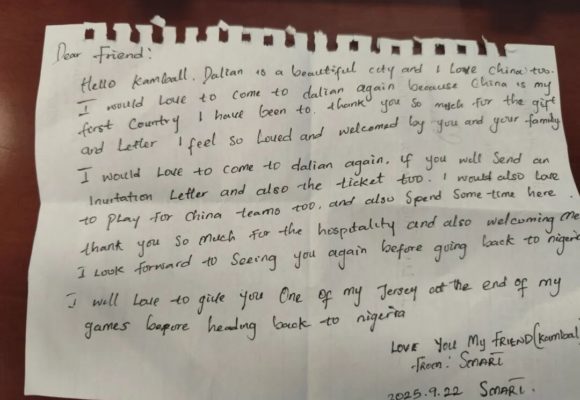 Dear Friend:
Hello Kamball. Dalian is a beautiful city and I Love China too.
I would Love to come to dalian again because China is my
first Country I have been to. thank you so much for the gift
and Letter I feel so Loved and welcomed by you and your family
I would Love to come to dalian again, if you will Send an
Invitation Letter and also the ticket too. I would also Love
to Play for China teams too, and also Spend Some time here.
thank you so much for the hospitality and also welcoming me
I Look forward to Seeing you again before going back to nigeria
I will Love to give you One of my Jersey at the end of my
games before heading back to nigeria
LOVE YOU MY FRIEND (Kamball)
From: SMART
2025.9.22 SMART.